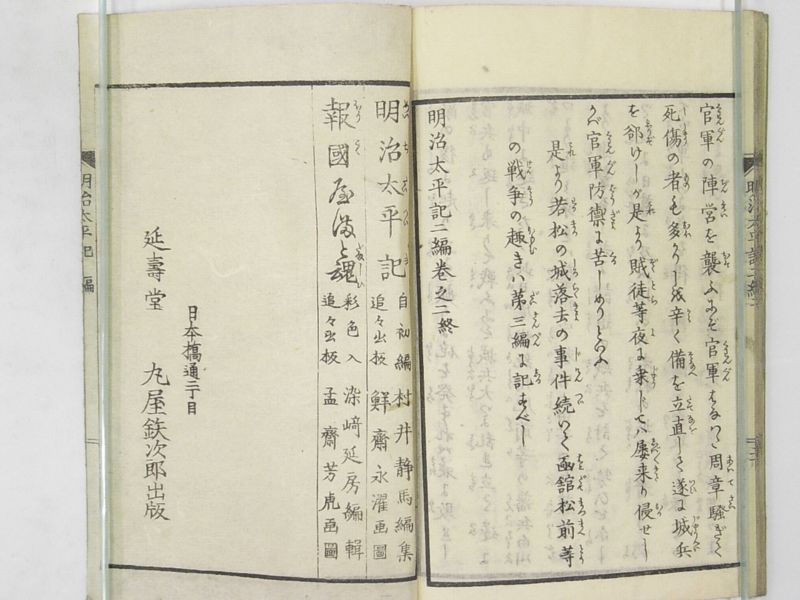 官軍の陣営を襲ふにぞ官軍はなはだ周章騒ぎて
死傷の者も多かりしが辛く備を立直しさて遂に城兵
を郤けしが是より賊徒等夜に乗じては屡来り侵せし
かバ官軍防禦に苦しめりといふ
是より若松の城落去の事件続いて函館松前等
の戦争の趣きハ第三編に記すべし
明治太平記二編巻之二終
明治太平記 自初編 追々出板 村井静馬編集 鮮齋永濯画圖
報國やまと魂 彩色入 追々出板 染﨑延房編輯 孟齋芳虎画圖
日本橋通二丁目
延壽堂 丸屋鉄次郎出版
明治太平記二編